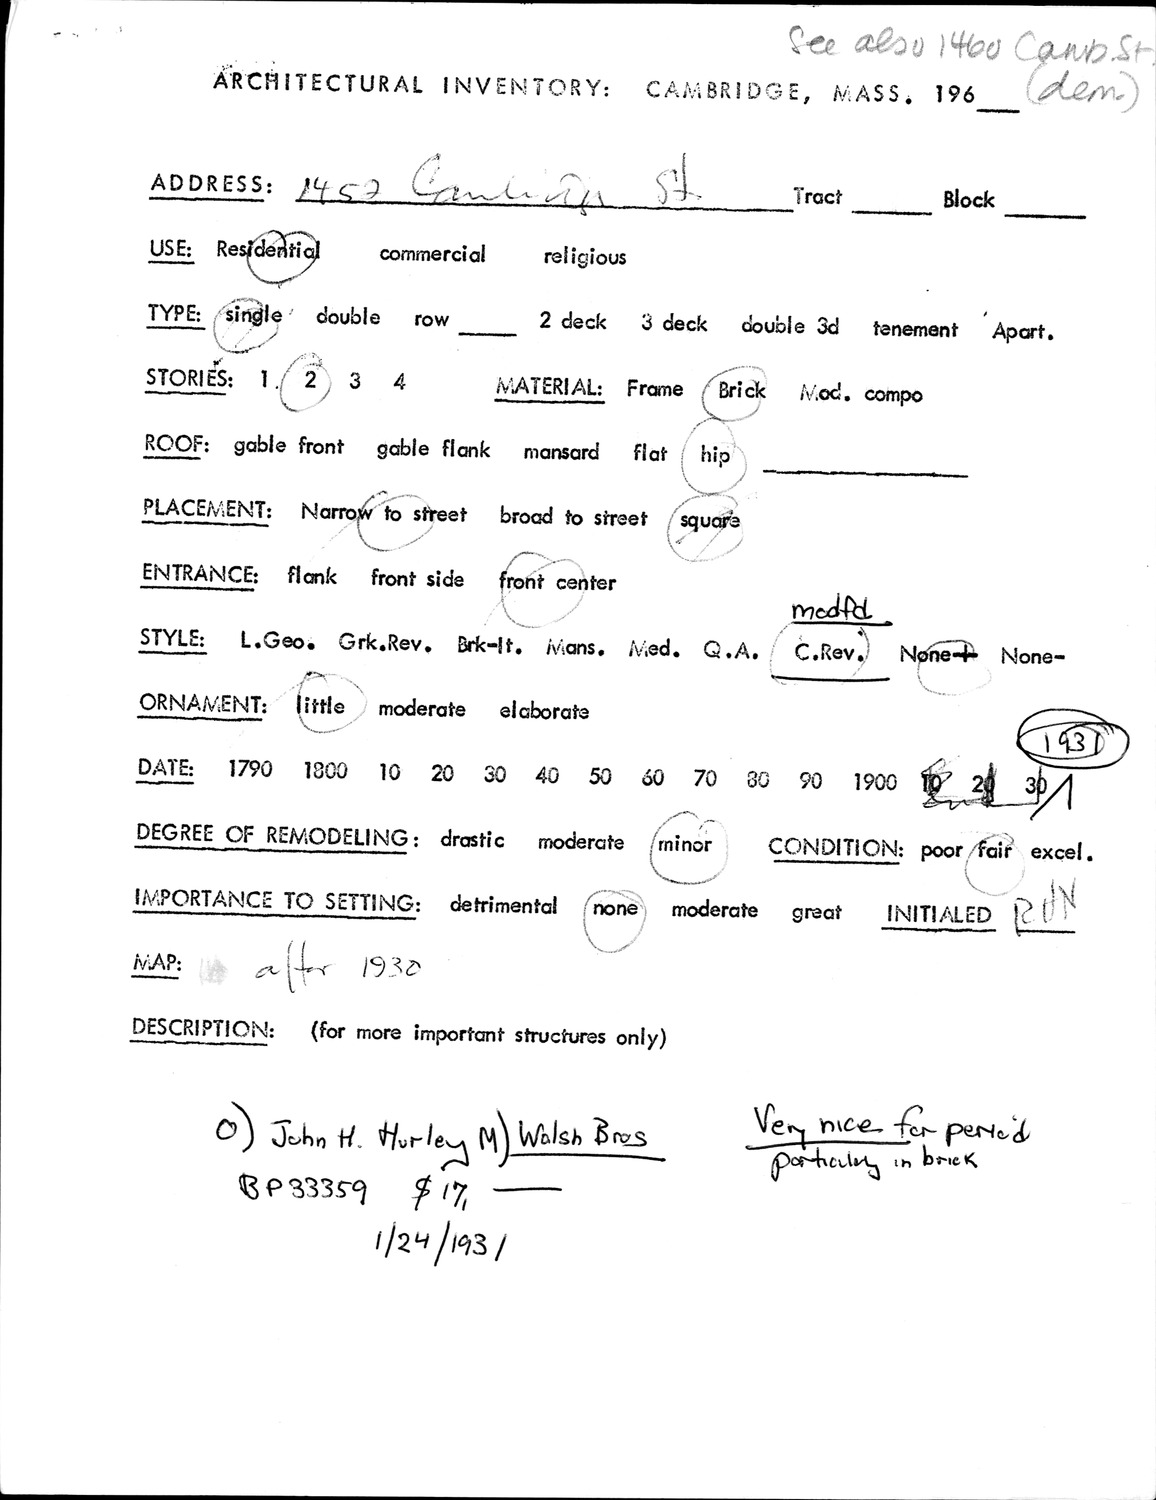 See also 1460 Camb. St.
(dem.)
ARCHITECTURAL INVENTORY: CAMBRIDGE, MASS. 196___
ADDRESS: 1457 Cambridge St. Tract ____ Block ____
USE: Residential commercial religious
TYPE: single double row ____ 2 deck 3 deck double 3d tenement Apart.
STORIES: 1. 2 3 4 MATERIAL: Frame Brick Mod. compo
ROOF: gable front gable flank mansard flat hip ____
PLACEMENT: Narrow to street broad to street square
ENTRANCE: flank front side front center
modfd.
STYLE: L.Geo. Grk.Rev. Brk-It. Mans. Med. Q.A. C.Rev. None+ None-
ORNAMENT: little moderate elaborate
1931
DATE: 1790 1800 10 20 30 40 50 60 70 80 90 1900 10 20 30
DEGREE OF REMODELING: drastic moderate minor CONDITION: poor fair excel.
IMPORTANCE TO SETTING: detrimental none moderate great INITIALED
MAP: after 1930
DESCRIPTION: (for more important structures only)
O) John H. Hurley M) Walsh Bros
BP33359 $17, —
1/24/1931
Very nice for period
particularly in brick